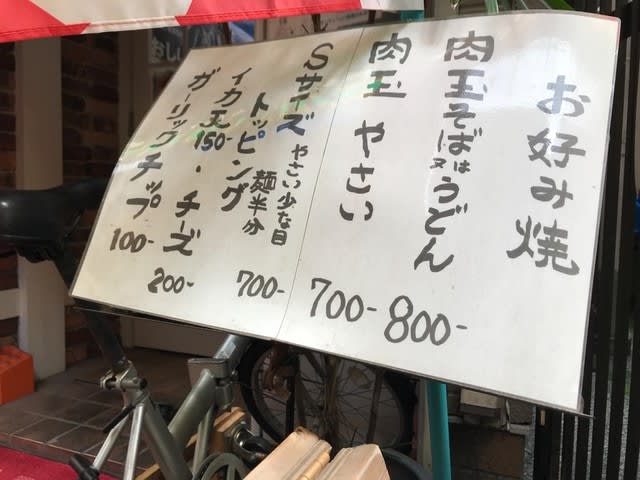 お好み焼
肉玉そば又はうどん 800-
肉玉 やさい 700-
Sサイズ やさい少な目
麺半分 700-
トッピング
イカ天150-・チーズ 200-
ガーリックチップ 100-